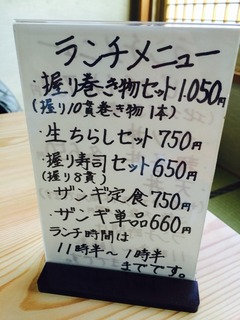 ランチメニュー
・握り巻き物セット1.050円
(握り10貫巻き物1本)
・生ちらしセット750円
・握り寿司セット650円
(握り8貫)
・ザンギ定食750円
・ザンギ単品660円
ランチ時間は
11時半～1時半
までです。